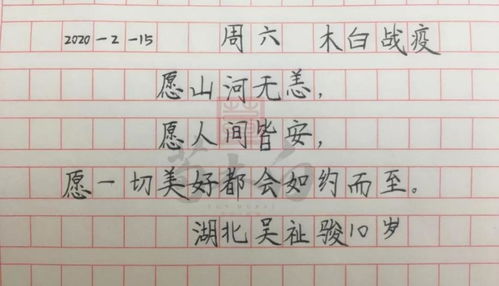 2020-2-15 周六 木白战疫
愿山河无恙，
愿人间皆安，
愿一切美好都会如约而至。
湖北吴祉骏10岁